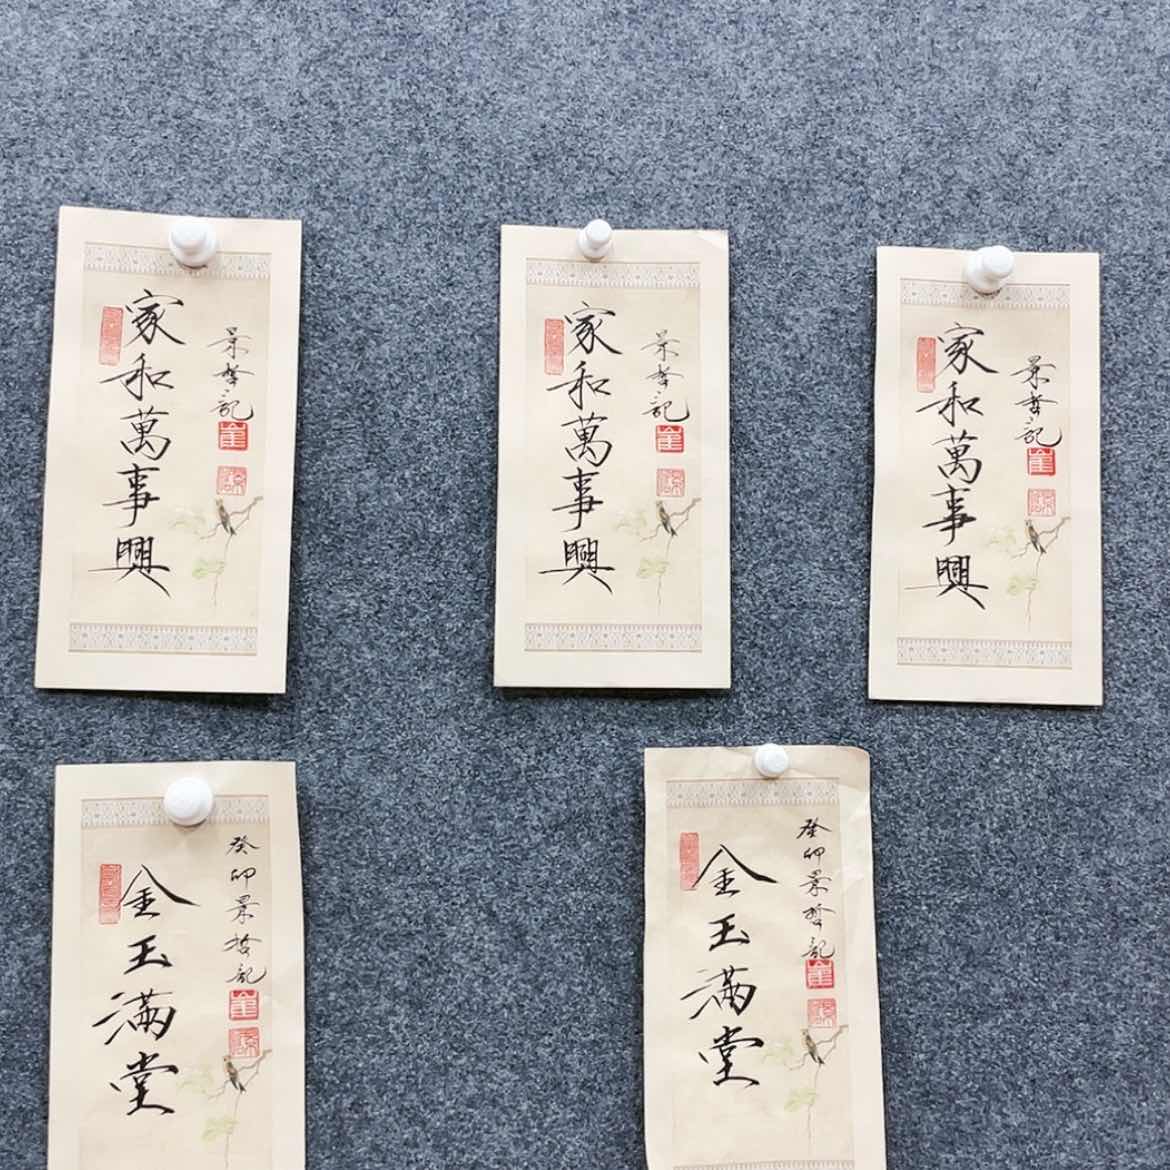 家和萬事興
景哲記
家和萬事興
景哲記
家和萬事興
景哲記
癸卯景哲記
金玉滿堂
癸卯景哲記
金玉滿堂